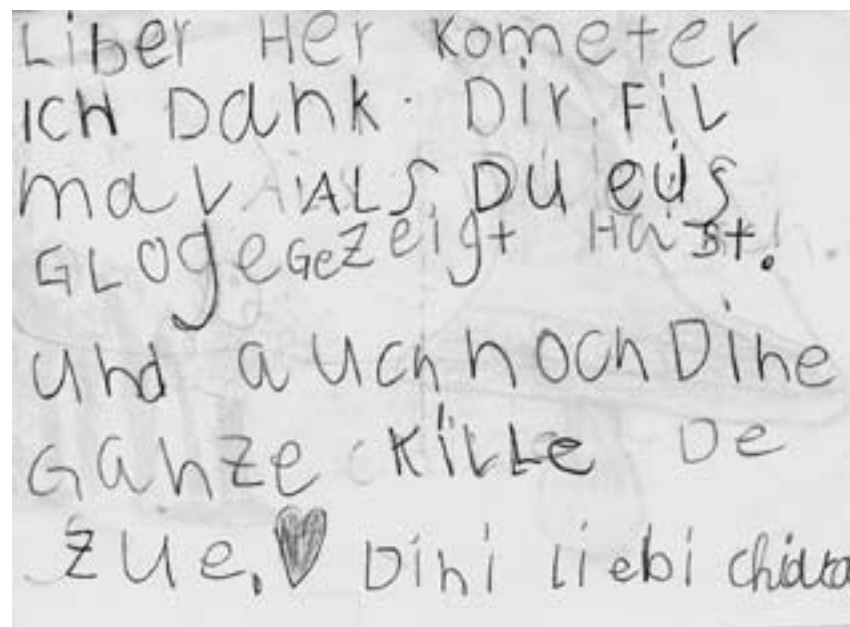 Liber Her Kometer
ICH Dank. Dir. FiL
maL ALS DU eus
GLOgeGeZeigt Hast.
und auch noch Dine
Ganze KiLLe De
zue. Dini liebi Chiara